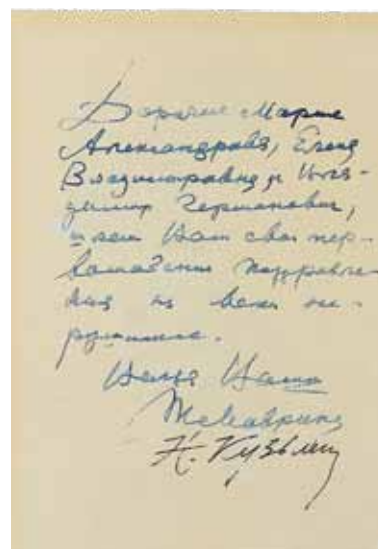 Дорогие Мария
Александровна, Елена
Владимировна и Вла-
димир Германович,
шлем Вам свои пер-
вомайские поздравле-
ния
Ваши
Т Маврина
Н. Кузьмин